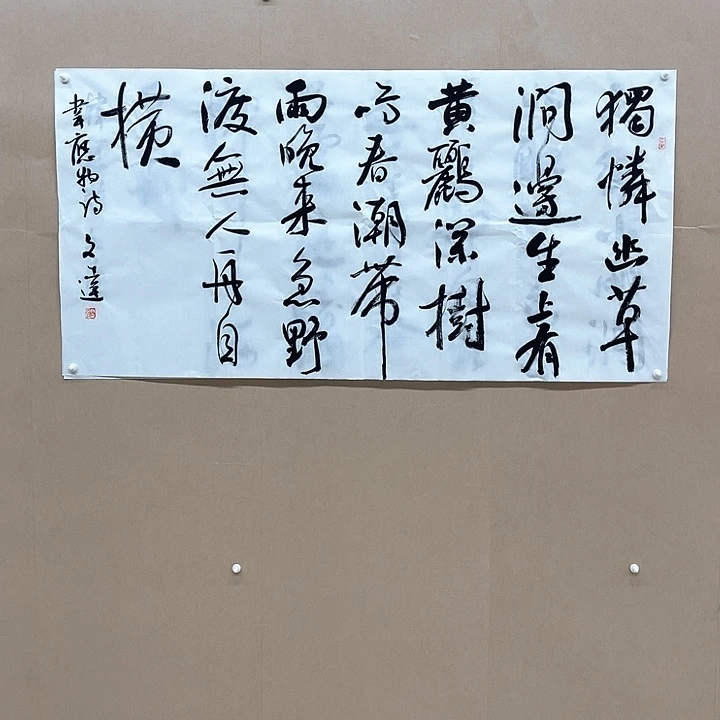 獨憐幽草
澗邊生上有
黃鸝深樹
鳴春潮帶
雨晚來急野
渡無人舟自
橫
韋應物詩 文達